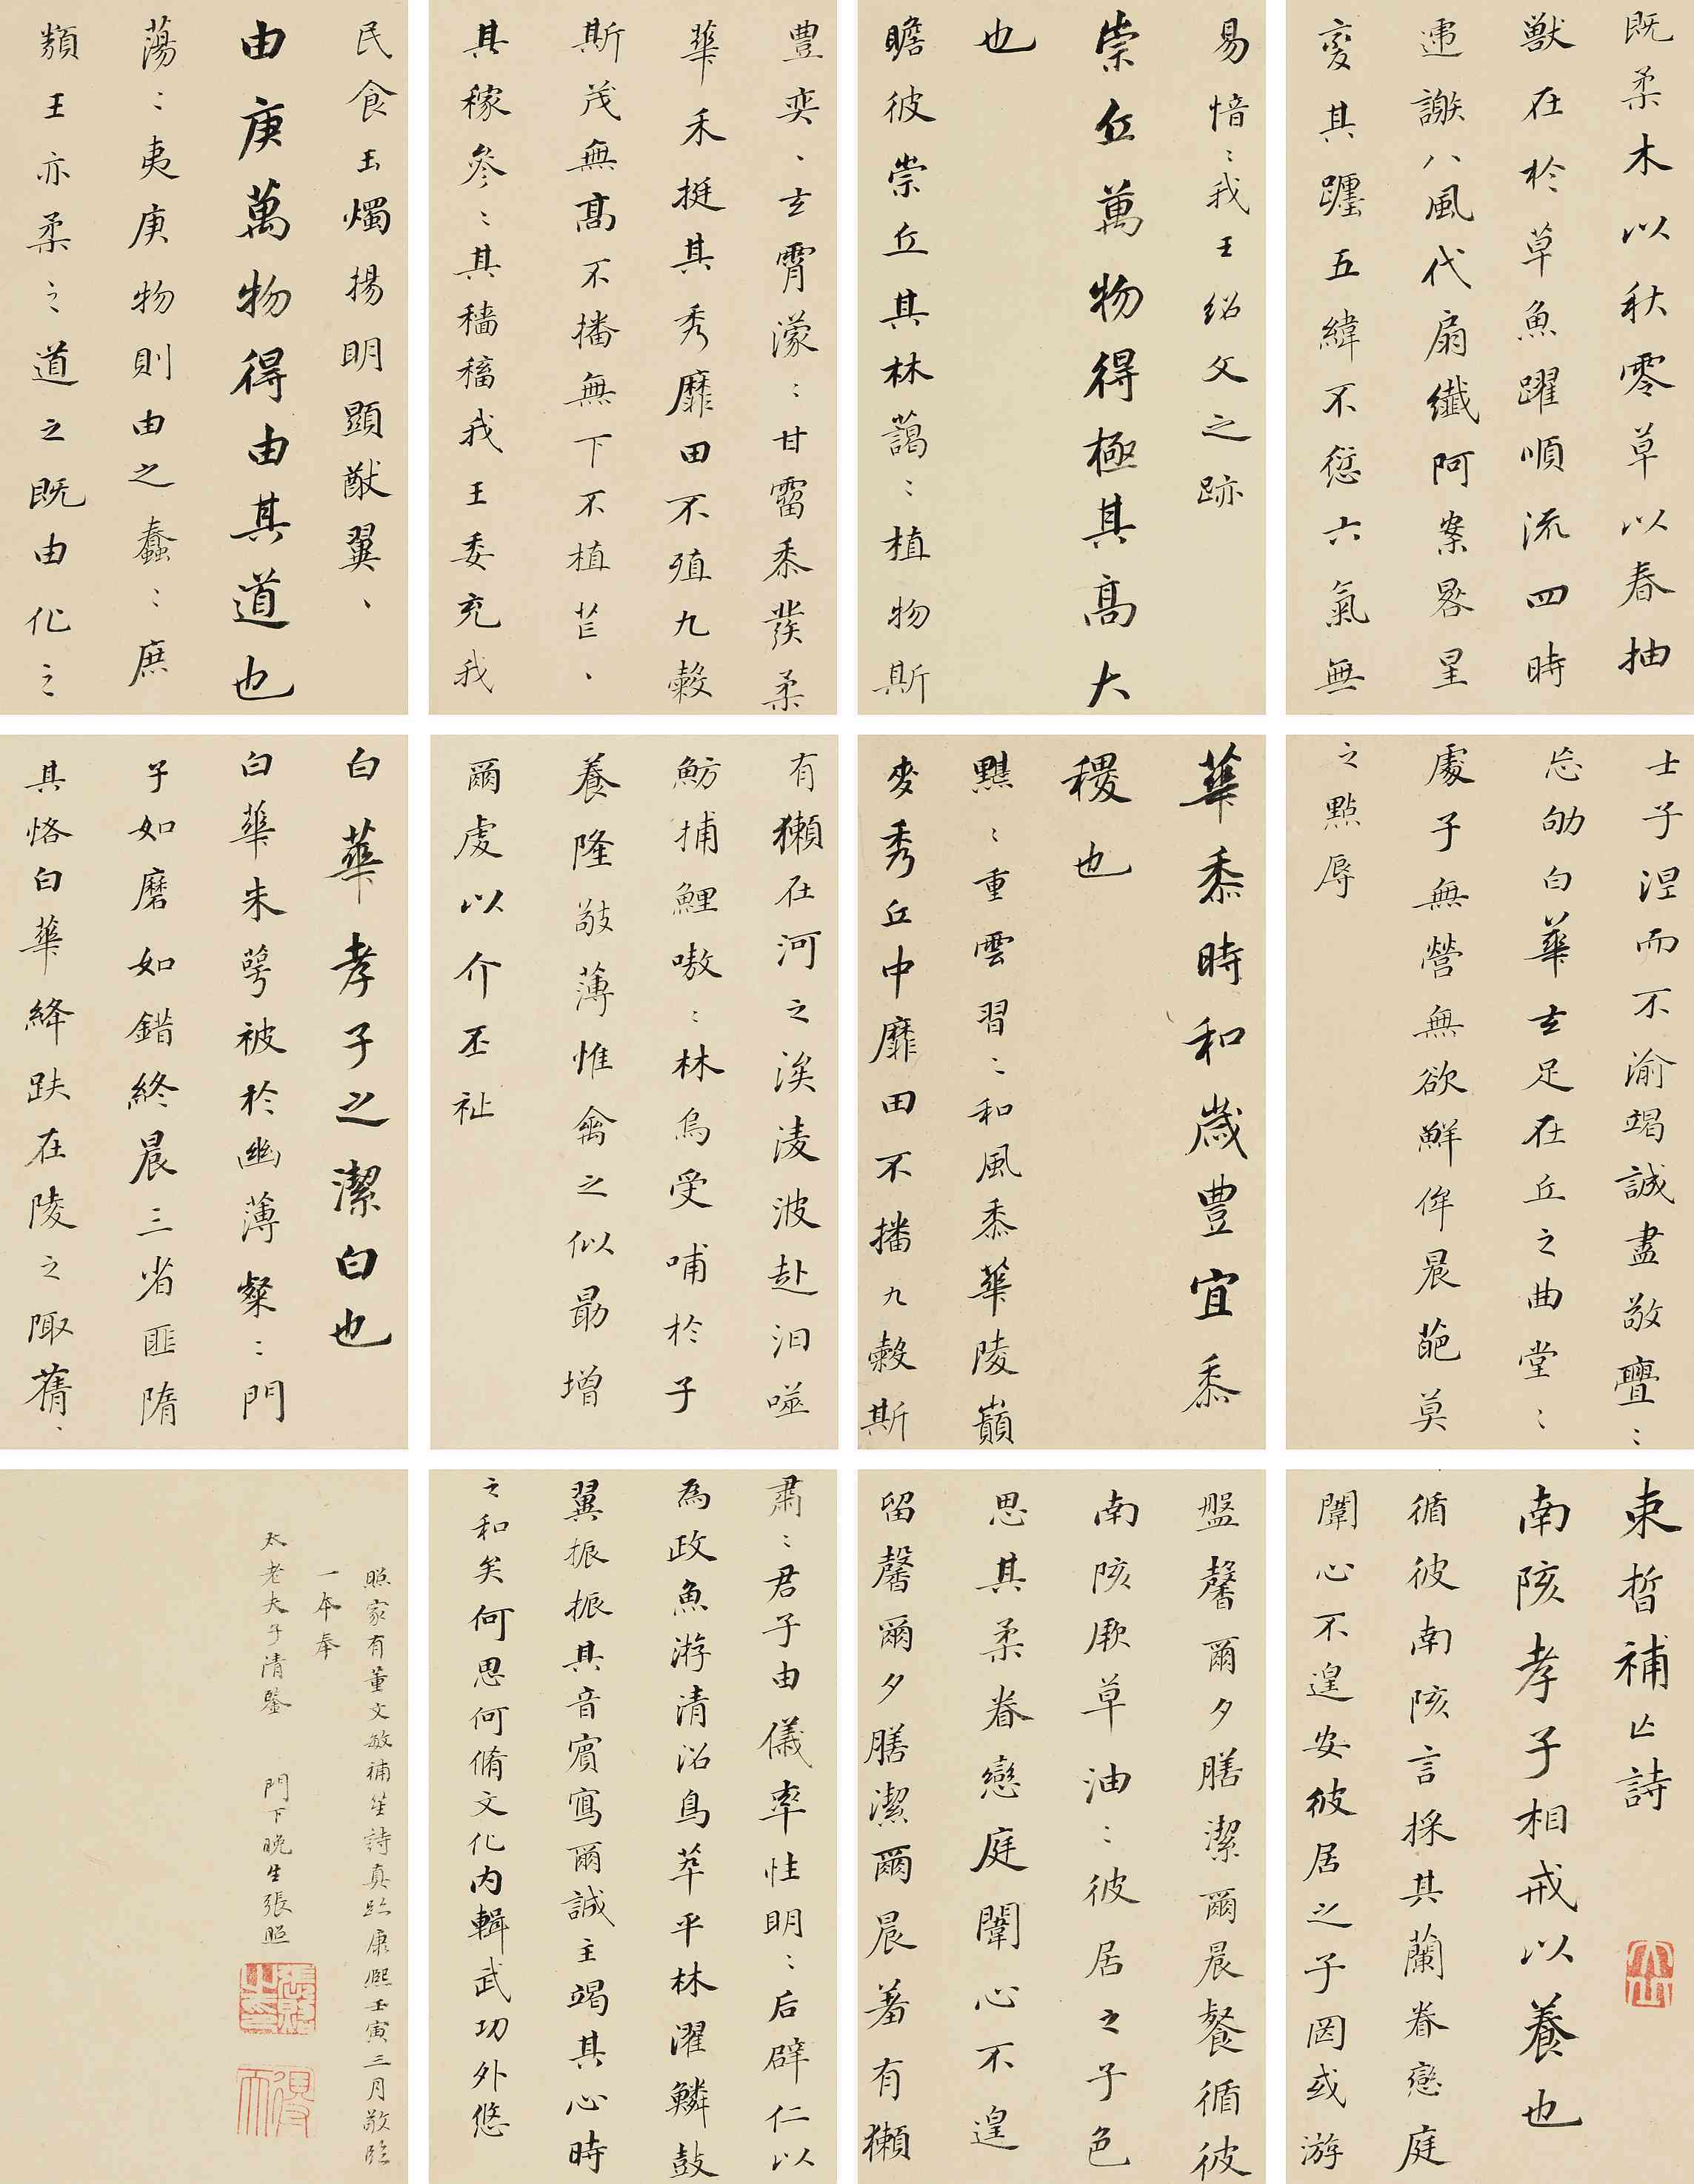 束皙補亡詩
南陔孝子相戒以養也
循彼南陔言採其蘭眷戀庭
闈心不遑安彼居之子罔或游
盤馨爾夕膳潔爾晨餐循彼
南陔厥草油〻彼居之子色
思其柔眷戀庭闈心不遑
留馨爾夕膳潔爾晨羞有獺
有獺在河之涘凌波赴汩噬
魴捕鯉嗷〻林烏受哺於子
養隆敬薄惟禽之似勗增
爾虔以介丕祉
白華孝子之潔白也
白華朱萼被於幽薄粲〻門
子如磨如錯終晨三省匪惰
其恪白華絳趺在陵之陬蒨、
士子涅而不渝竭誠盡敬亹〻
忘劬白華玄足在丘之曲堂〻
處子無營無欲鮮侔晨葩莫
之點辱
華黍時和歲豐宜黍
稷也
黮〻重雲習〻和風黍華陵巔
麥秀丘中靡田不播九穀斯
豐奕、玄霄濛〻甘霤黍發柔
華禾挺其秀靡田不殖九穀
斯茂無高不播無下不植芒、
其稼參〻其穡稸我王委充我
民食玉燭揚明顯猷翼、
由庚萬物得由其道也
蕩〻夷庚物則由之蠢〻庶
類王亦柔之道之既由化之
既柔木以秋零草以春抽
獸在於草魚躍順流四時
遞謝八風代扇纖阿案晷星
變其躔五緯不愆六氣無
易愔〻我王紹文之跡
崇丘萬物得極其高大
也
瞻彼崇丘其林藹〻植物斯
肅〻君子由儀率性明〻后辟仁以
為政魚游清沼鳥萃平林濯鱗鼓
翼振振其音賓寫爾誠主竭其心時
之和矣何思何脩文化內輯武功外悠
照家有董文敏補笙詩真跡康熙壬寅三月敬臨
一本奉
太老夫子清鑒 門下晚生張照
張照之印
得天